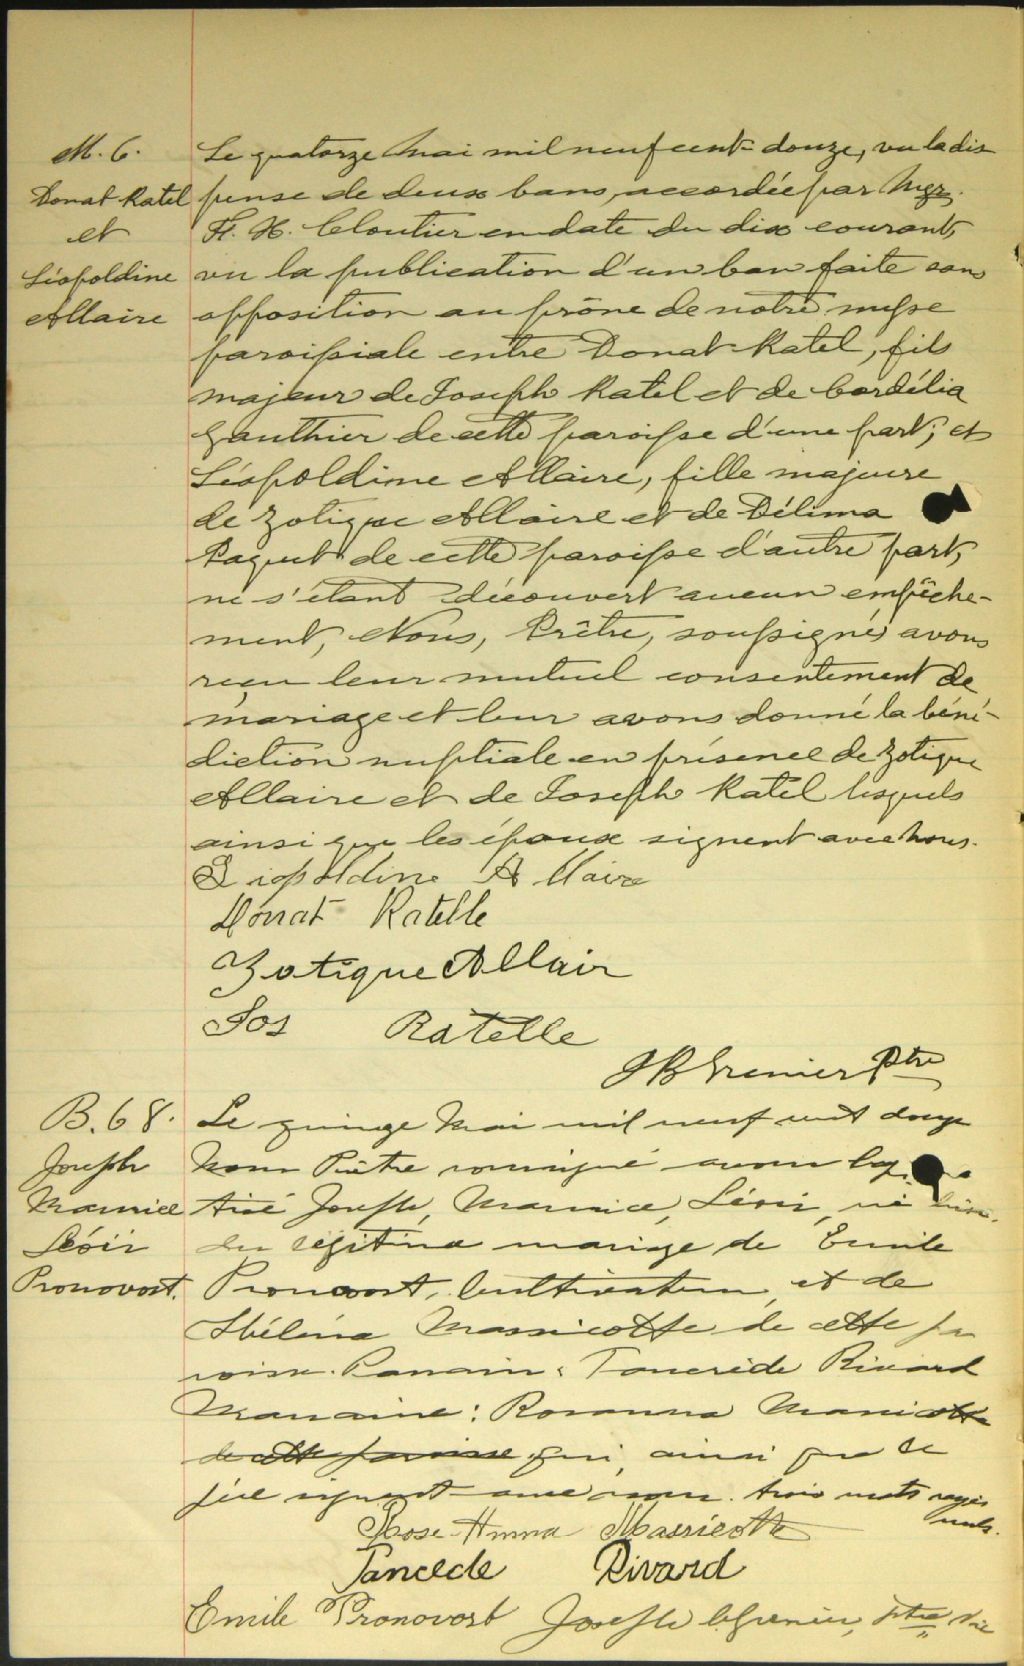 M. 6.
Donat Ratel
et
Léopoldine
Allaire
Le quatorze Mai mil neuf cent douze, vu la dis
pense de deux bans, accordée par Mgr.
F. X. Cloutier en date du dix courant,
vu la publication d'un ban faite sans
opposition au prône de notre messe
paroissiale entre Donat Ratel, fils
majeur de Joseph Ratel et de Cordélia
Gauthier de cette paroisse d'une part; et
Léopoldine Allaire, fille majeure
de Zotique Allaire et de Délima
Paquet de cette paroisse d'autre part,
ne s'étant découvert aucun empêche-
ment, Nous, Prêtre, soussigné, avons
reçu leur mutuel consentement de
mariage et leur avons donné la béné-
diction nuptiale en présence de Zotique
Allaire et de Joseph Ratel lesquels
ainsi que les époux signent avec nous.
Léopoldine Allaire
Donat Ratelle
Zotique Allair
Jos Ratelle
JB Grenier Ptre
B. 68.
Joseph
Maurice
Léoir
Pronovost.
Le quinze Mai mil neuf cent douze
Nous Prêtre soussigné avons bap
tisé Joseph, Maurice, Léoir, né hier
du légitime mariage de Emile
Pronovost, cultivateur, et de
Massicotte de cette pa
roisse. Parrain: Tancrède Rivard
Marraine: Rosanna Massicotte
de cette paroisse qui, ainsi que le
père signent avec nous. trois mots rayés
nuls.
Rose-Anna Massicotte
Tancede Rivard
Emile Pronovost Joseph Grenier, ptre vic